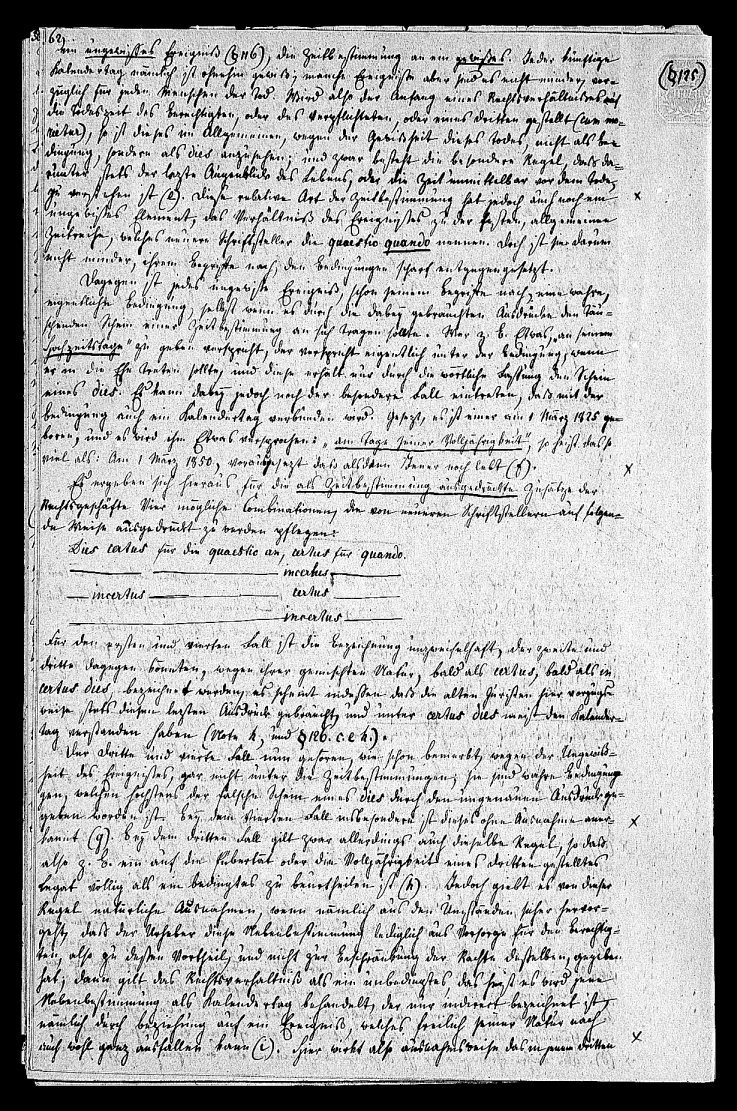 62)
ein ungewisses Ereigniß (§ 116), die Zeitbestimmung an ein gewisses. Jeder künftige
Kalendertag nämlich ist ohnehin gewiß; manche Ereignisse aber sind es nicht minder, vor-
züglich für jeden Menschen der Tod. Wird also der Anfang eines Rechtsverhältnisses auf
die Todeszeit des Berechtigten, oder des Verpflichteten, oder eines Dritten gestellt (cum mo-
rietur), so ist dieses im Allgemeinen, wegen der Gewißheit dieses Todes, nicht als Be-
dingung, sondern als dies anzusehen; und zwar besteht die besondere Regel, daß da-
runter stets der letzte Augenblick des Lebens, oder die Zeit unmittelbar vor dem Tode,
zu verstehen ist (e). Diese relative Art der Zeitbestimmung hat jedoch auch noch ein
ungewisses Element, das Verhältniß des Ereignisses zu der festen, allgemeinen
Zeitreihe, welches neuere Schriftsteller die quaestio quando nennen. Doch ist sie darum
nicht minder, ihrem Begriffe nach, den Bedingungen scharf entgegengesetzt.
Dagegen ist jedes ungewisse Ereigniß, schon seinem Begriffe nach, eine wahre,
eigentliche Bedingung, selbst wenn es durch die dabey gebrauchten Ausdrücke den täu-
schenden Schein einer Zeitbestimmung an sich tragen sollte. Wer z. B. Etwas „an seinem
Hochzeitstage“ zu geben verspricht, der verspricht eigentlich unter der Bedingung, wenn
er in die Ehe treten sollte, und diese erhält nur durch die wörtliche Fassung den Schein
eines dies. Es kann dabey jedoch noch der besondere Fall eintreten, daß mit der
Bedingung auch ein Kalendertag verbunden wird. Gesetzt, es ist einer am 1 März 1825 ge-
boren, und es wird ihm Etwas versprochen: „am Tage seiner Volljährigkeit“, so heißt das so
viel als: Am 1 März 1850, vorausgesetzt daß alsdann Jener noch lebt (f).
Es ergeben sich hieraus, für die als Zeitbestimmung ausgedrückte Zusätze der
Rechtsgeschäfte vier mögliche Combinationen, die von neueren Schriftstellern auf folgen-
de Weise ausgedrückt zu werden pflegen:
Dies certus für die quaestio an, certus für quando.
incertus
incertus certus
incertus
Für den ersten und vierten Fall ist die Bezeichnung unzweifelhaft, der zweite und
dritte dagegen könnten, wegen ihrer gemischten Natur, bald als certus, bald als in-
certus dies, bezeichnet werden; es scheint indessen daß die alten Juristen hier vorzugs-
weise stets diesen letzten Ausdruck gebraucht, und unter certus dies meist den Kalender-
tag verstanden haben (Note h, und § 126. c. e. k.).
Der dritte und vierte Fall nun gehören, wie schon bemerkt, wegen der Ungewiß-
heit des Ereignisses, gar nicht unter die Zeitbestimmungen; sie sind wahre Bedingun-
gen, welchen höchstens der falsche Schein eines dies durch den ungenauen Ausdruck ge-
geben worden ist. Bey dem vierten Fall insbesondere ist dieses ohne Ausnahme aner-
kannt (g). Bey dem dritten Fall gilt zwar allerdings auch dieselbe Regel, so daß
also z. B. ein auf die Pubertät oder die Volljährigkeit eines Dritten gestelltes
Legat völlig als ein bedingtes zu beurtheilen ist (h). Jedoch giebt es von dieser
Regel natürliche Ausnahmen, wenn nämlich aus den Umständen sicher hervor-
geht, daß der Urheber diese Nebenbestimmung lediglich aus Vorsorge für den Berechtig-
ten, also zu dessen Vortheil, und nicht zur Beschränkung der Rechte desselben, gegeben
hat; dann gilt das Rechtsverhältniß als ein unbedingtes, das heißt es wird jene
Nebenbestimmung als Kalendertag behandelt, der nur indirect bezeichnet ist,
nämlich durch Beziehung auf ein Ereigniß, welches freilich seiner Natur nach
auch wohl ganz ausfallen kann (i). Hier wirkt also ausnahmsweise das in jenem dritten
(§ 125)